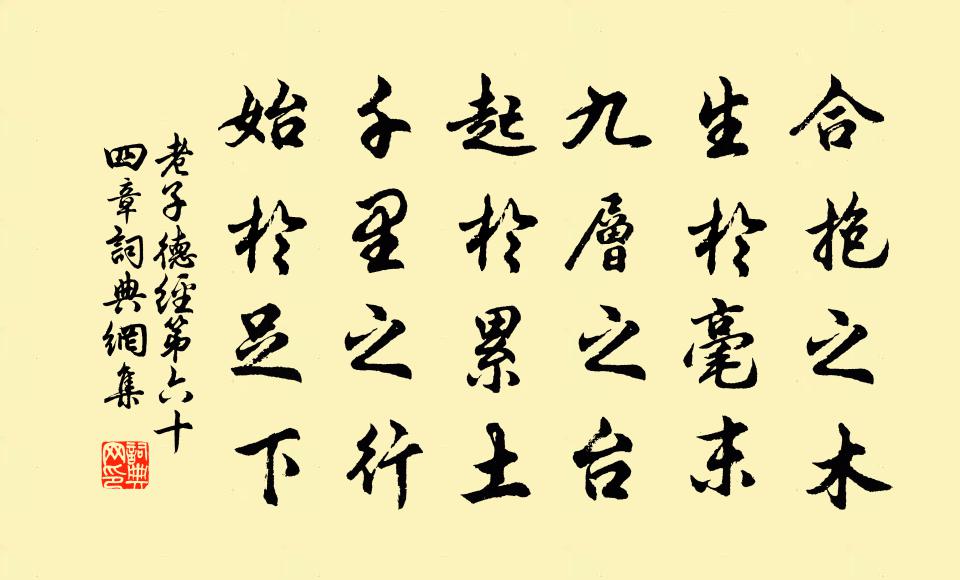 合抱之木
生於毫末
九層之台
起於累土
千里之行
始於足下
老子德經第六十
四章詞典網集
詞典网印